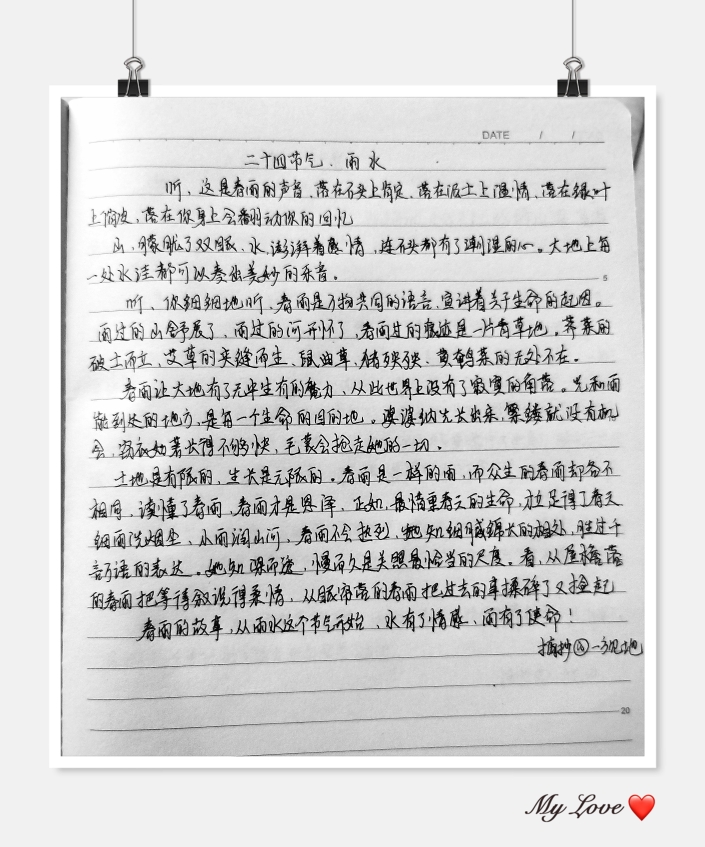 DATE / /
二十四节气·雨水
听、这是春雨的声音、落在石头上肯定、落在泥土上温情、落在绿叶
上俏皮、落在你身上会翻动你的回忆
山、朦胧了双眼、水、澎湃着感情、连石头都有了潮湿的心。大地上每
一处水洼都可以奏出美妙的乐音。
5
听、你细细地听、春雨是万物共同的语言、宣讲着关于生命的起因。
雨过的山舒展了、雨过的河开怀了、春雨过的痕迹是一片青草地。荠菜的
破土而立、艾草的夹缝而生、鼠曲草、猪殃殃、黄鹌菜的无处不在。
春雨让大地有了无中生有的魔力、从此世界上没有了寂寞的角落。光和雨
能到达的地方、是每一个生命的目的地。婆婆纳先长出来、繁缕就没有机
会、窃衣如若长得不够快、毛茛会抢走她的一切。
土地是有限的，生长是无限的。春雨是一样的雨，而众生的春雨却各不
相同、读懂了春雨、春雨才是恩泽、正如、最懂春天的生命、才足得了春天
细雨洗烟尘、小雨润山河、春雨不会热烈、她知细腻绵长的相处、胜过千
言万语的表达。她知骤而疾、慢而久是关照最恰当的尺度。看、从屋檐落
的春雨把等待叙说得柔情、从眼帘落的春雨把过去的事揉碎了又捡起
春雨的故事，从雨水这个节气开始、水有了情感、雨有了使命！
摘抄@一方见地
20
My Love ❤️